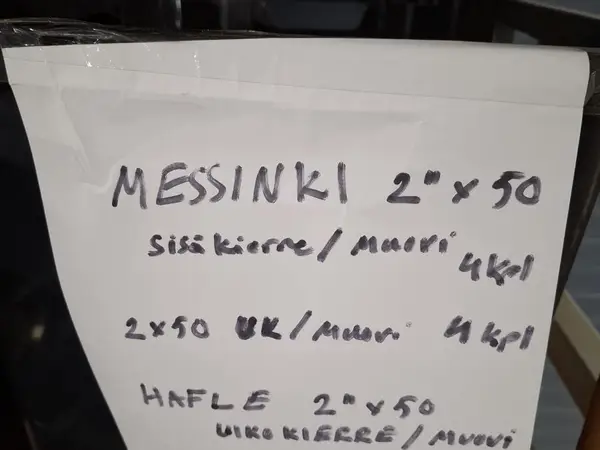 MESSINKI 2" x 50
sisäkierre / muovi 4 kpl
2x50 UK / muovi 4 kpl
HAFLE 2" x 50
UlkOKIERRE / muovi